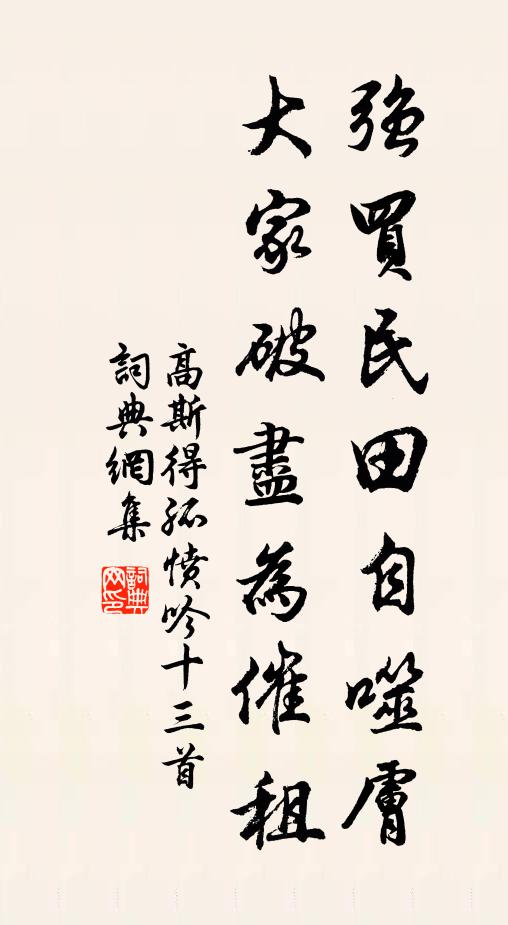 強買民田自噬膚
大家破盡為催租
高斯得孤憤吟十三首
詞典網集
詞典網印